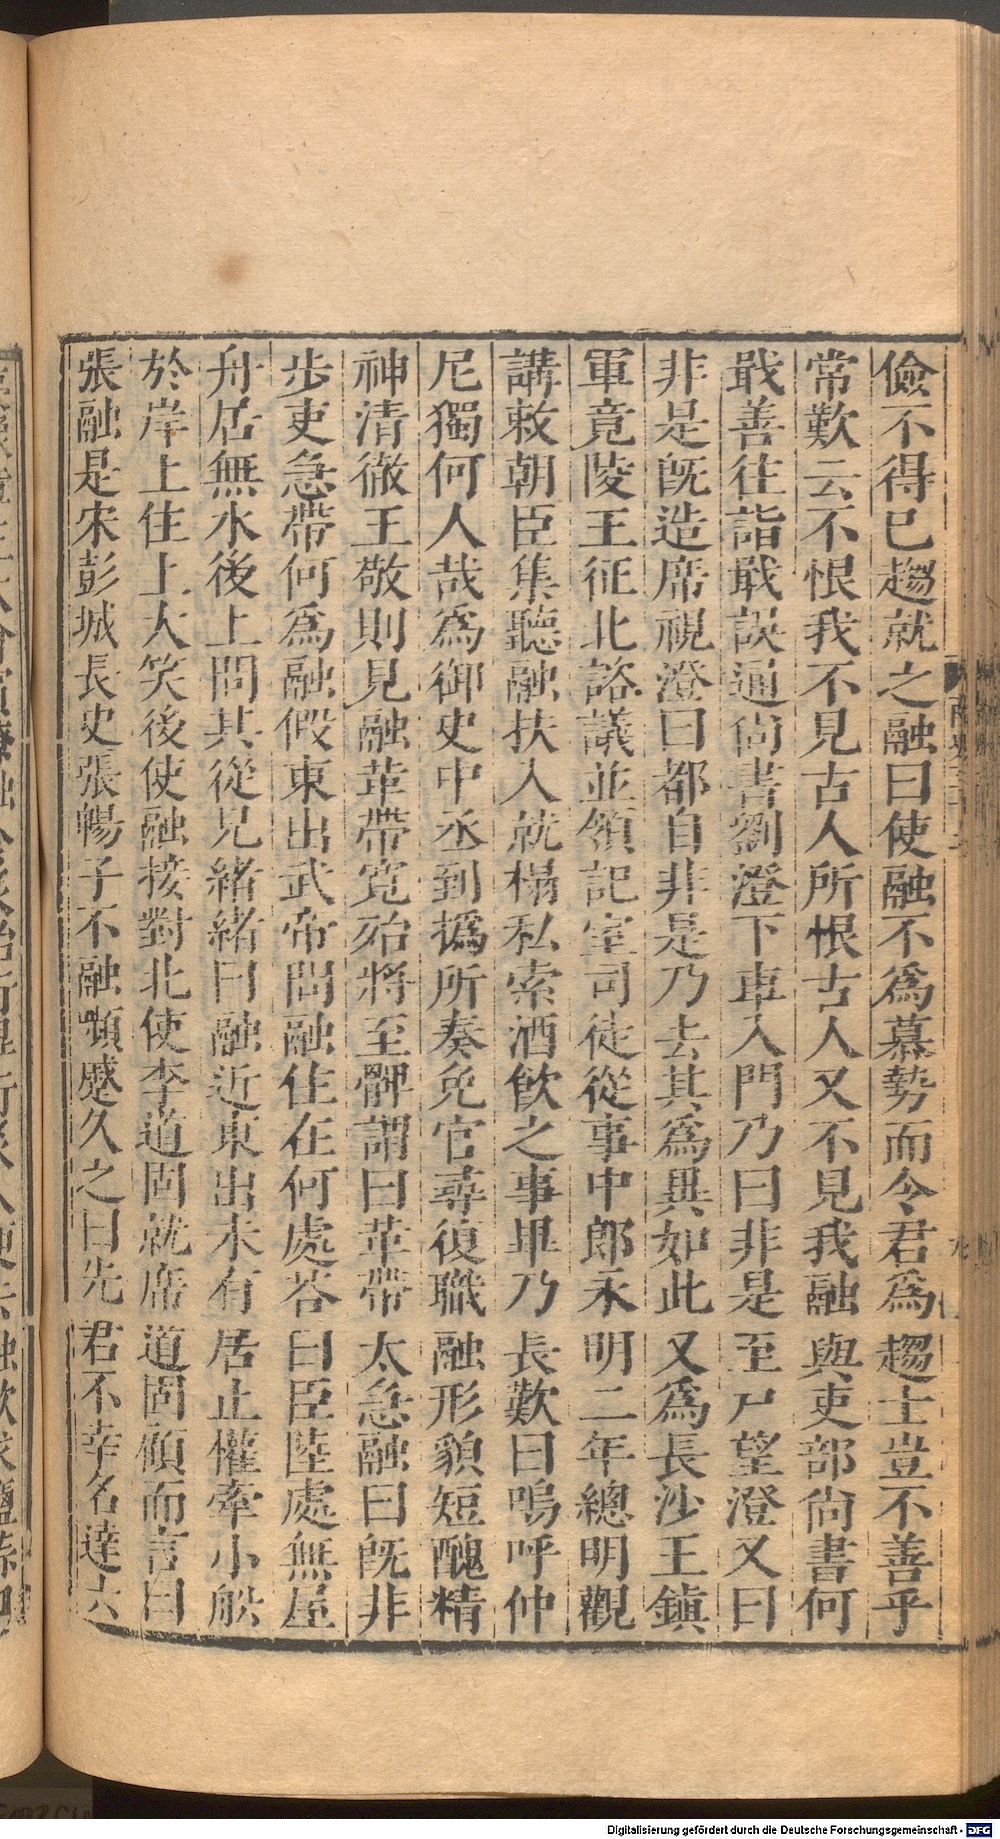 儉不得已趨就之融曰使融不爲慕勢而令君爲趨士豈不善乎
常歎云不恨我不見古人所恨古人又不見我融與吏部尙書何
戢善往詣戢誤通尙書劉澄下車入門乃曰非是至戸望澄又曰
非是旣造席視澄曰都自非是乃去其爲異如此又爲長沙王鎭
軍竟陵王征北諮議並領記室司徒從事中郎永明二年總明觀
講敕朝臣集聽融扶入就榻私索酒飮之事畢乃長歎曰嗚呼仲
尼獨何人哉爲御史中丞到撝所奏免官尋復職融形貌短醜精
神清徹王敬則見融革帶寛殆將至髀謂曰革帶太急融曰旣非
步吏急帶何爲融假東出武帝問融住在何處荅曰臣陸處無屋
舟居無水後上問其從兄緒緒曰融近東出未有居止權牽小船
於岸上住上大笑後使融接對北使李道固就席道固顧而言曰
張融是宋彭城長史張暢子不融嚬蹙久之曰先君不幸名達六
Digitalisierung gefördert durch die Deutsche Forschungsgemeinschaft - DFG